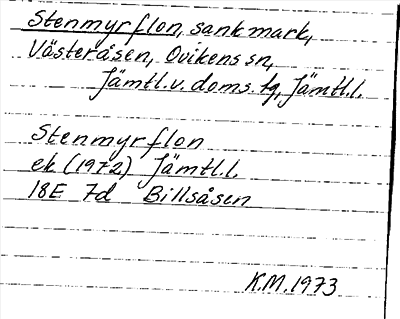 Stenmyrflon, sankmark,
Västeråsen, Ovikens sn,
Jämtl.v. doms. tg, Jämtl.l.
Stenmyrflon
ek (1972) Jämtl.l.
18E 7d Billsåsen
K.M. 1973